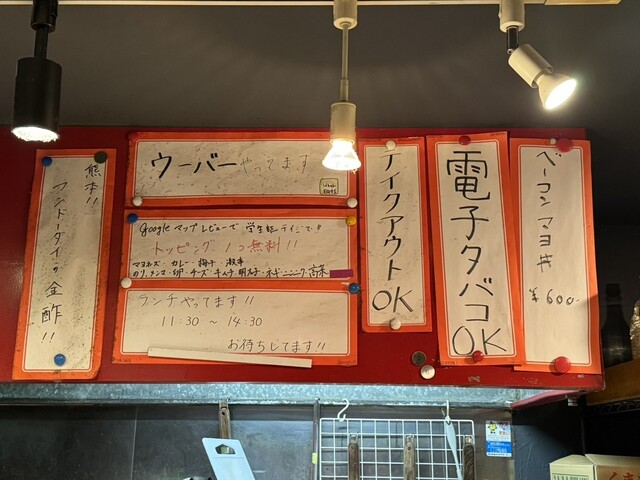 熊本!!
フンドーダイの金酢!!
ウーバーやってます
Uber Eats
googleマップレビューで学生証テイジで!!
トッピング1つ無料!!
マヨネーズ・カレー・梅干・激辛
のり・メンマ・卵・チーズ・キムチ・明太子・ネギ・ニンニク・高菜
ランチやってます!!
11:30 ～ 14:30
お待ちしてます!!
テイクアウトOK
電子タバコOK
ベーコンマヨ丼
¥600-